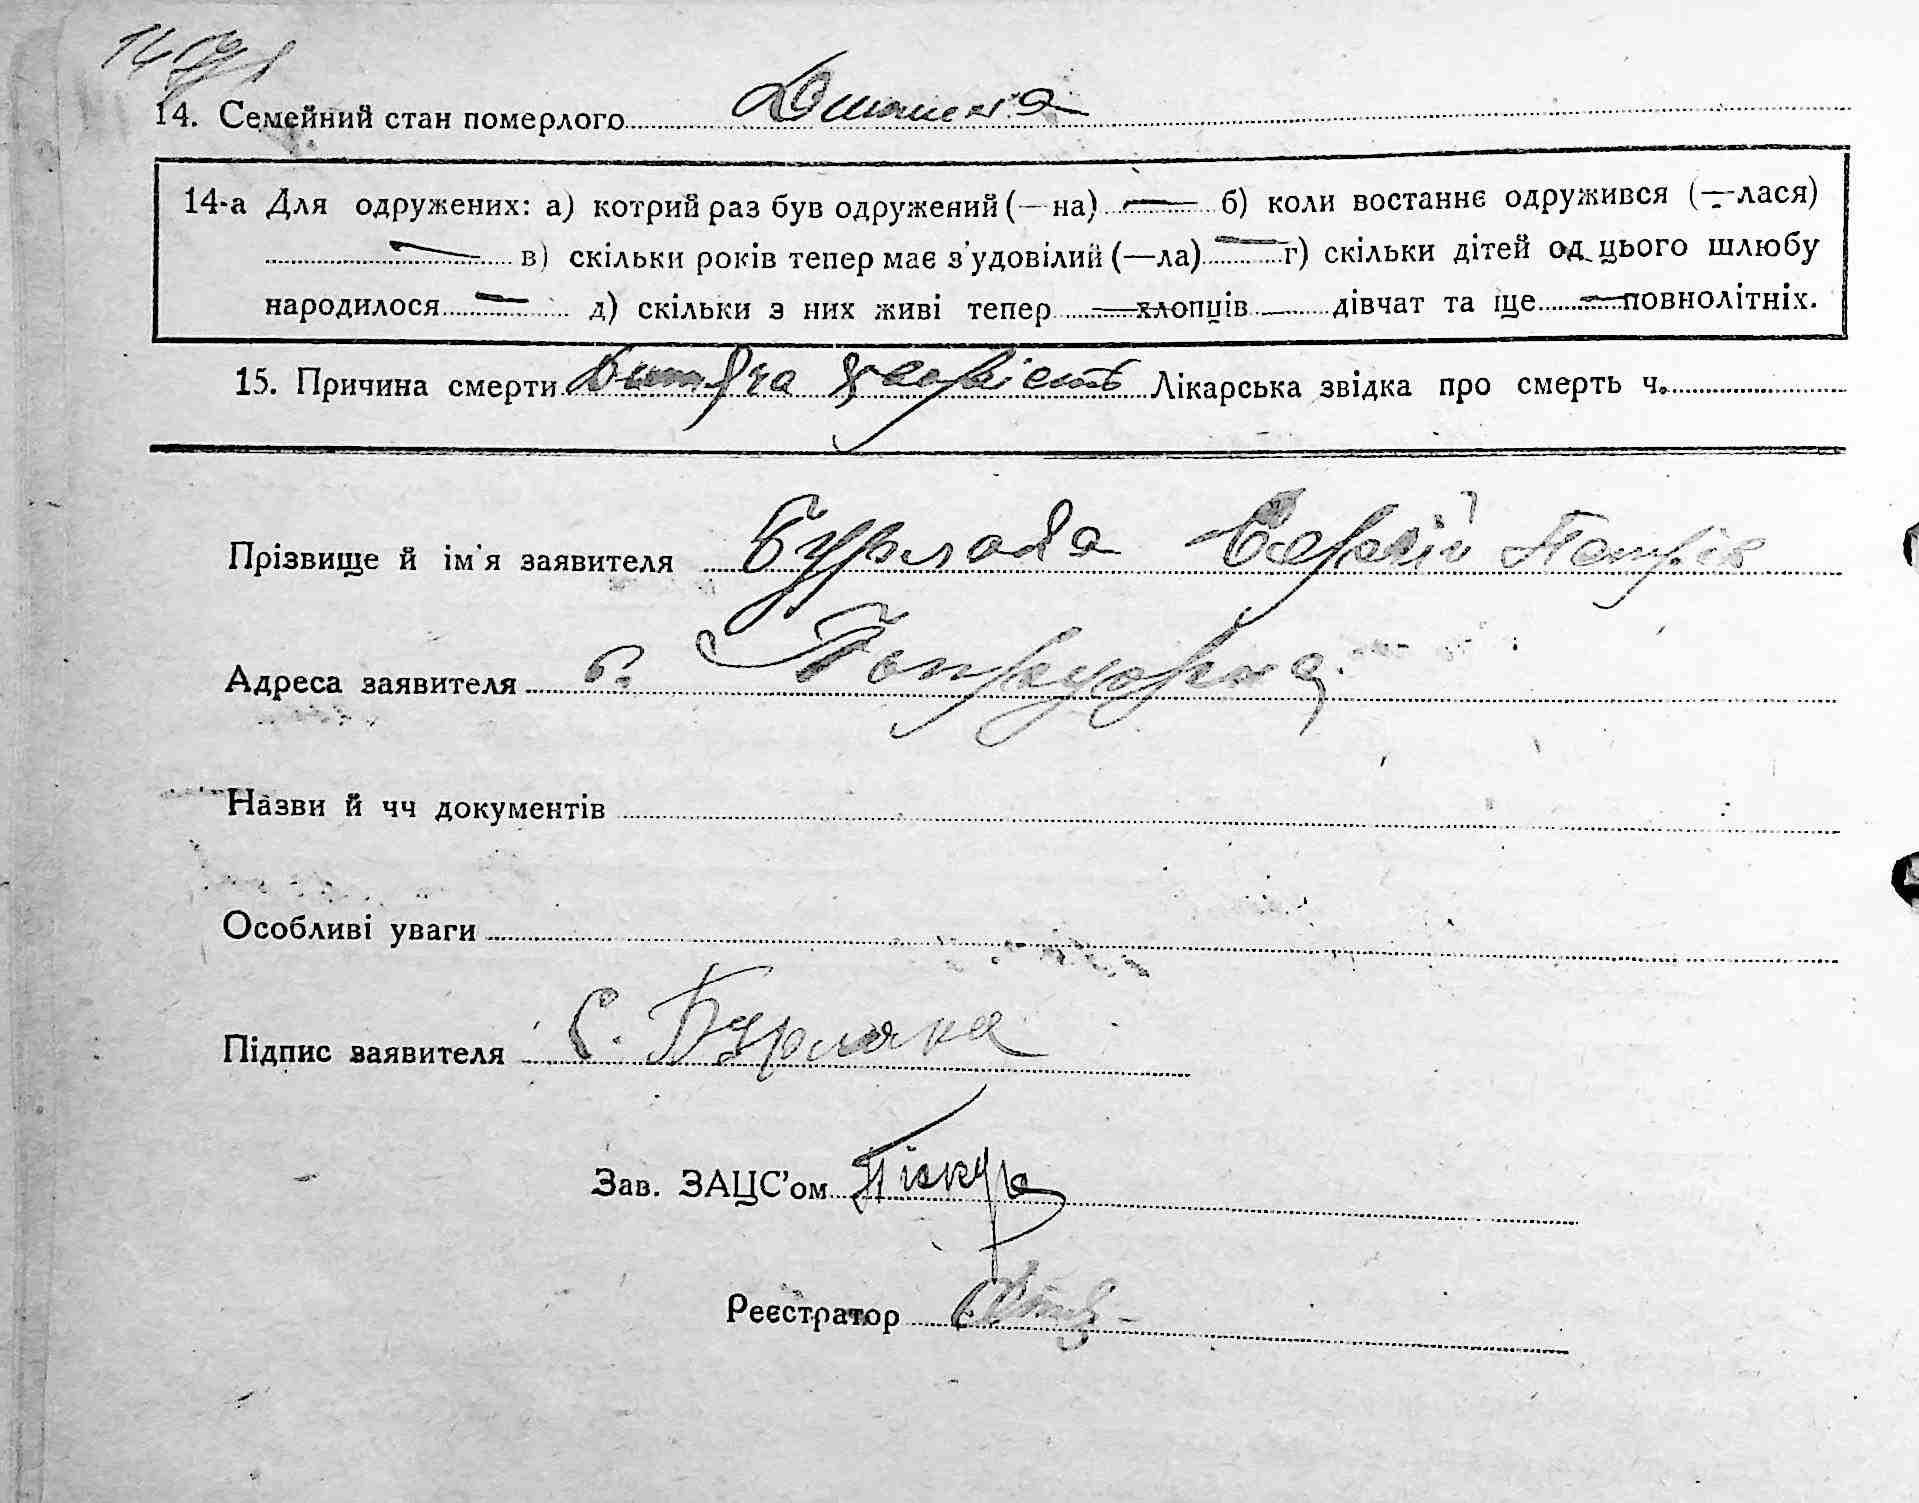 14. Семейний стан померлого Дитина
14-а Для одружених: а) котрий раз був одружений (—на) — б) коли востаннє одружився (—лася)
— в) скільки років тепер має з'удовілий (—ла) — г) скільки дітей од цього шлюбу
народилося — д) скільки з них живі тепер — хлопців — дівчат та ще — повнолітніх.
15. Причина смерти Дитяча хворість Лікарська звідка про смерть ч.
Прізвище й ім'я заявителя Бурлака Сергій
Адреса заявителя с.
Назви й чч документів
Особливі уваги
Підпис заявителя С. Бурлака
Зав. ЗАЦС'ом Піскур
Реєстратор